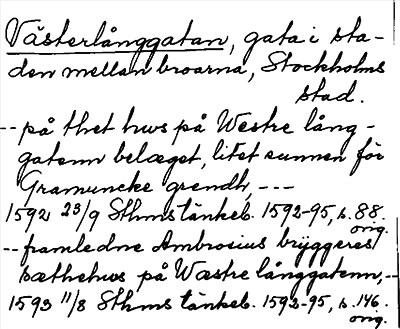 Västerlånggatan, gata i sta-
den mellan broarna, Stockholms
stad.
-- på thet hws på Westre lång-
gatenn belæget, litet sunnen för
Gramuncke grendh, ---
1592 23/9 Sthms tänkeb. 1592-95, s. 88.
orig.
-- framledne Ambrosius bryggeres
sæthehws på Wæstre långgatenn, --
1593 11/8 Sthms tänkeb. 1592-95, s. 146.
orig.